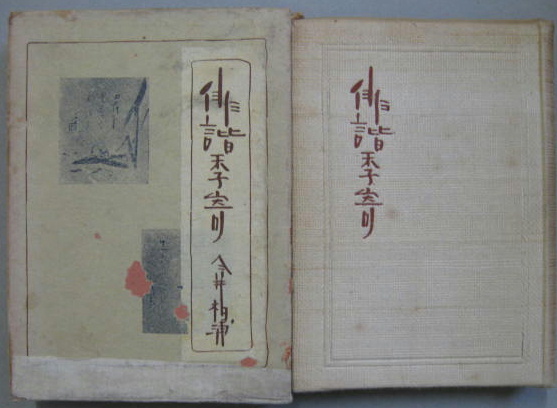 俳諧季寄
今井柏浦
俳諧季寄